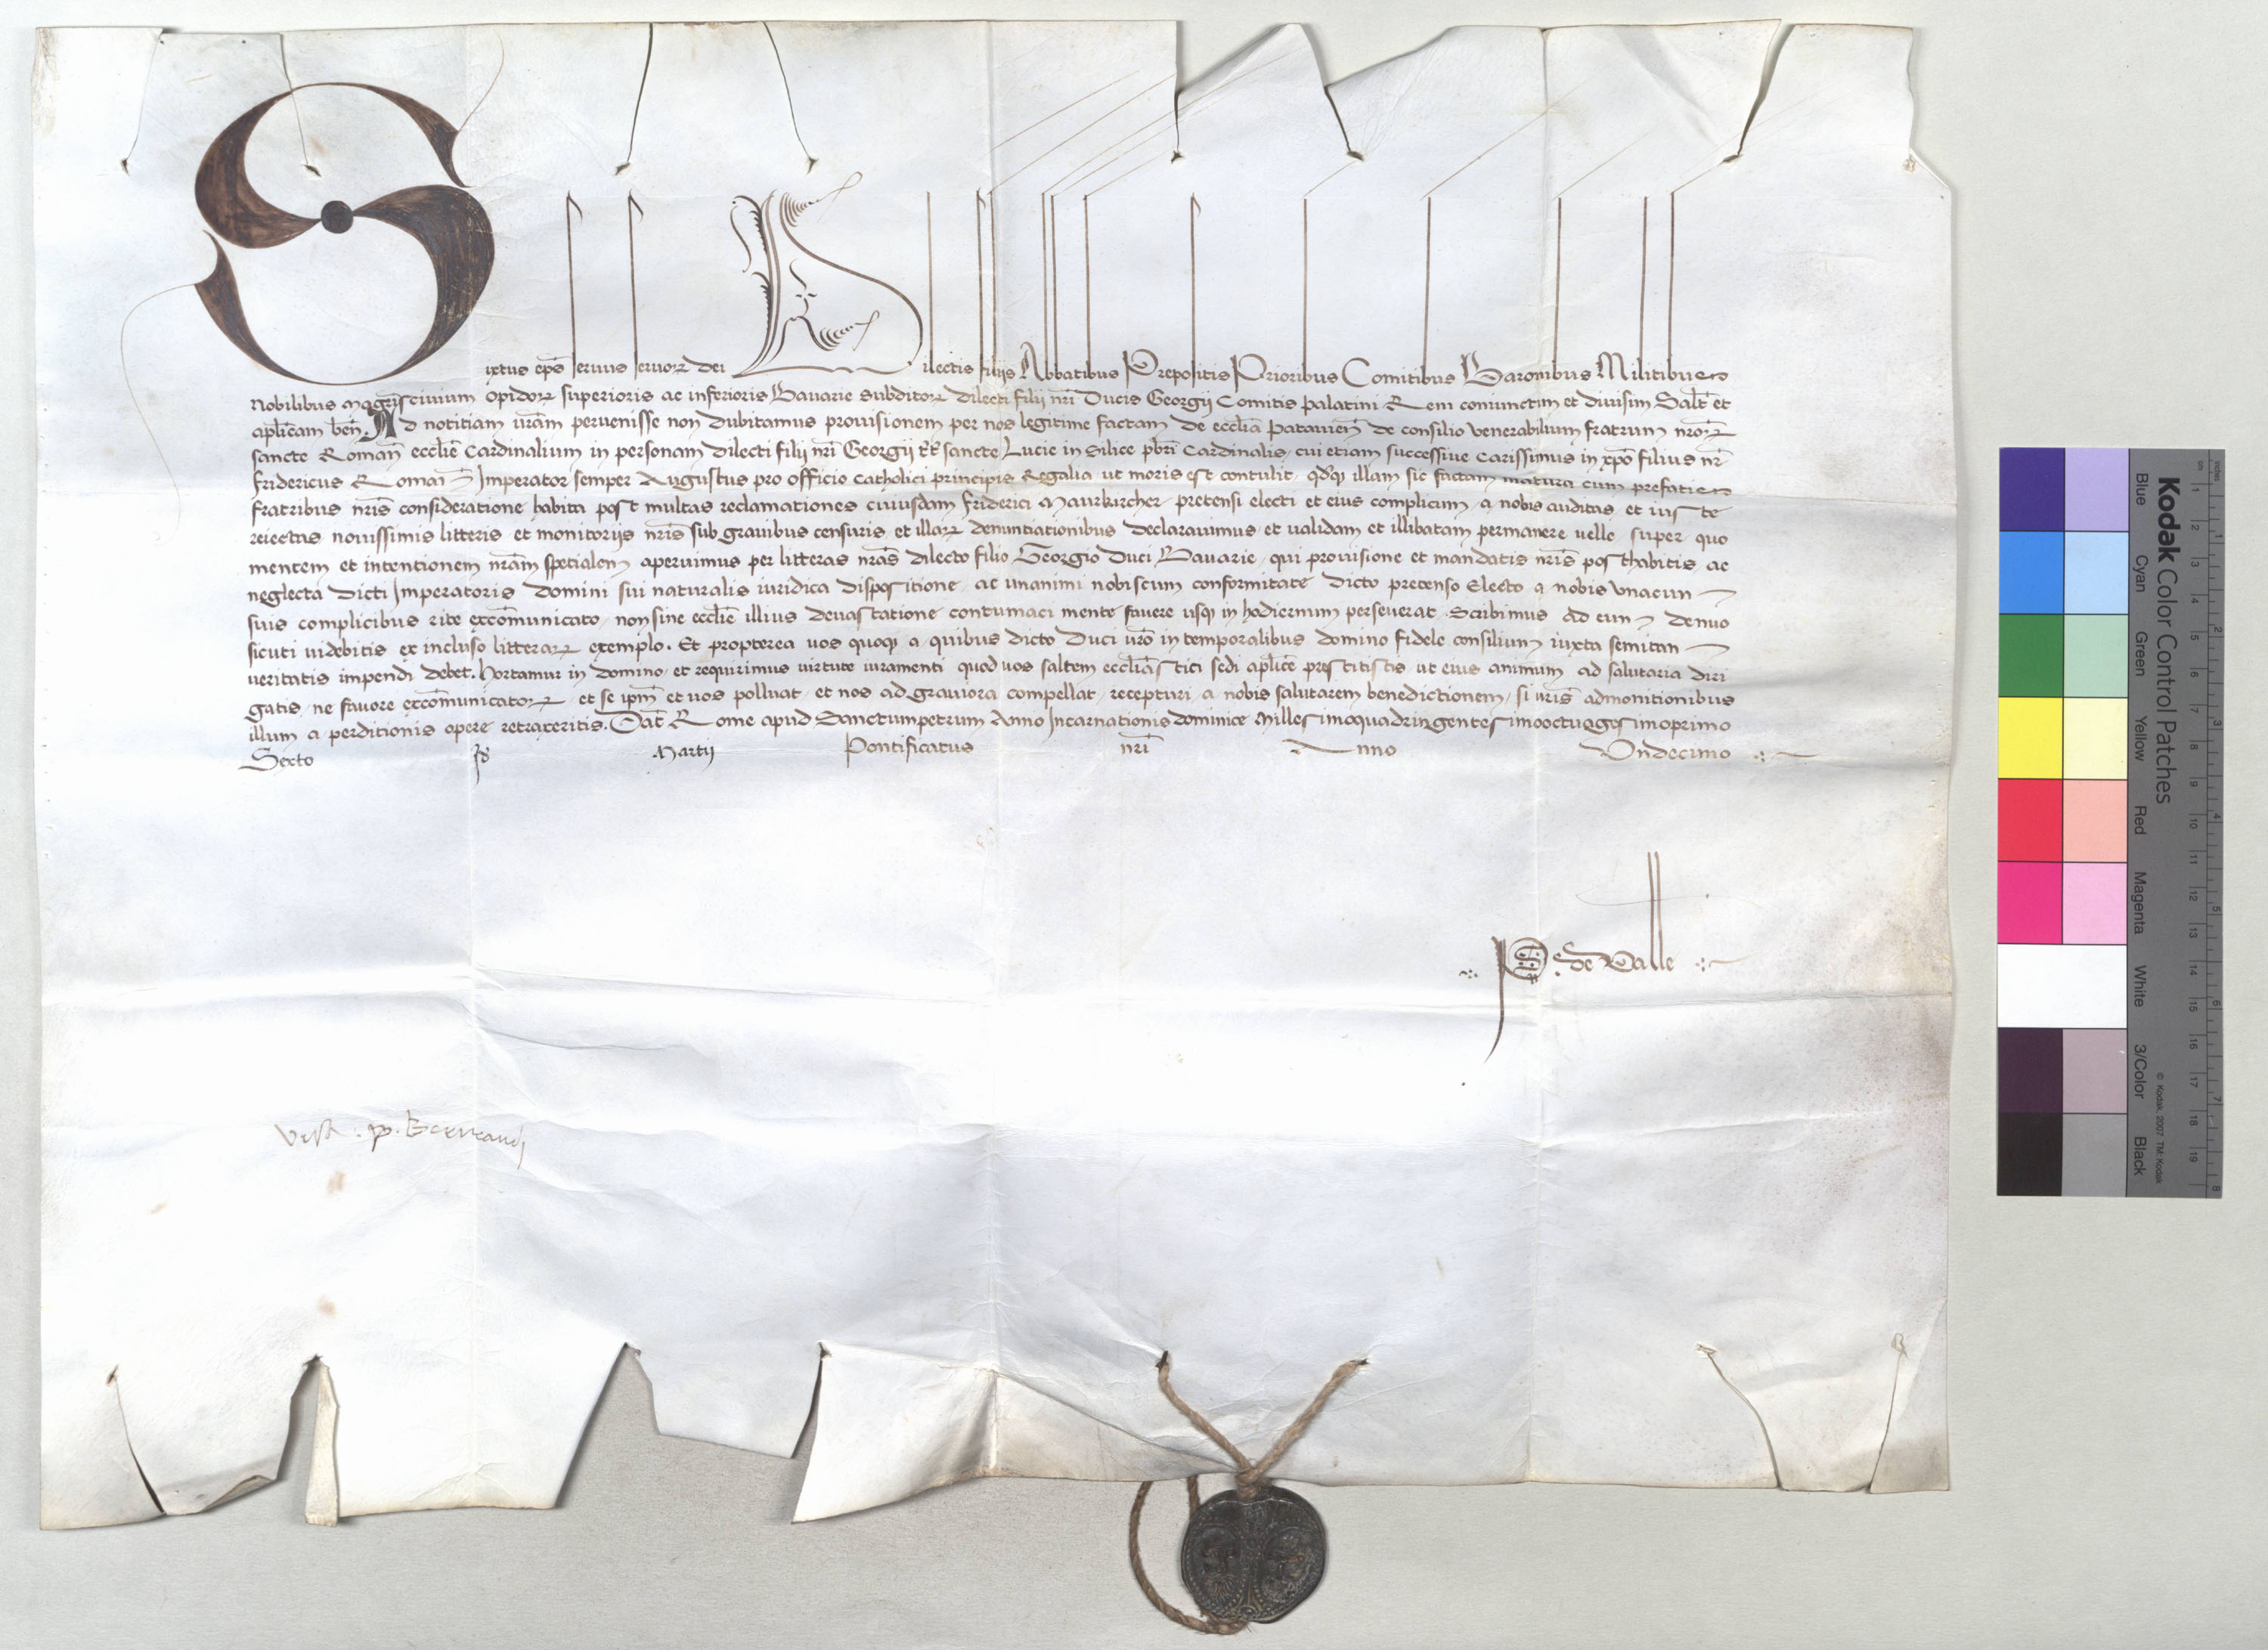 Sixtus ep̄s servus servoꝝ dei Dilectis filijs Abbatibus Prepositis Prioribus Comitibus Baronibus Militibus
Nobilibus Mag̅ris civium opidoꝝ superioris ac inferioris Bavarie subditoꝝ dilecti filii nr̄i Ducis Georgij Comitis palatini Rem coniunctim et divisim Salt̄ et
aplīcam ben̄. Ad notitiam vr̄am pervenisse non dubitamus provisionem per nos legitime factam de ecclīa Patavien̄ de consilio venerabilium fratrum nr̄oꝝ
sancte Roman̄ ecclīe Cardinalium in personam dilecti filij nr̄i Georgij tt̄ sancte Lucie in Silice pbr̄i Cardinalis, cui etiam successive Carissimus in xp̄o filius nr̄
fridericus Roman̄ Imperator semper Augustus pro officio catholici principis Regalia ut moris est contulit, qd̄q illam sic factam matura cum prefatis
fratribus nr̄is consideratione habita post multas reclamationes cuiusdam friderici Maurkircher pretensi electi et eius complicum a nobis auditas et iuste
reiectas novissimis litteris et monitorijs nr̄is sub gravibus censuris et illaꝝ denuntiationibus declaravimus et validam et illibatam permanere velle super quo
mentem et intentionem nr̄am specialem aperuimus per litteras nr̄as dilecto filio Georgio Duci Bavarie, qui provisione et mandatis nr̄is posthabitis, ac
neglecta dicti Imperatoris domini sui naturalis iuridica dispositione ac unanimi nobiscum conformitate dicto pretenso Electo a nobis unacum
suis complicibus rite excōmunicato, non sine ecclīe illius devastatione contumaci mente favere usq in hodiernum perseverat. Scribimus ad eum denuo
sicuti videbitis ex incluso litteraꝝ exemplo. Et propterea vos quoq a quibus dicto Duci vr̄o in temporalibus domino fidele consilium iuxta semitam
veritatis impendi debet. hortamur in domino et requirimus virtute iuramenti quod vos saltem ecclīastici sedi aplīce prestitistis ut eius animum ad salutaria diri
gatis, ne favore excōmunicatoꝝ et se ipm̄ et vos polluat et nos ad graviora compellat, recepturi a nobis salutarem benedictionem, si vr̄is admonitionibus
illum a perditionis opere retraxeritis. Dat̄ Rome apud Sanctumpetrum Anno Incarnationis dominice Millesimoquadringentesimooctuagesimoprimo
Sexto Id̄ Martij Pontificatus nr̄i Anno Undecimo
de Valle
Visa . p. Bertrandi
Kodak Color Control Patches
Blue Cyan Green Yellow Red Magenta White 3/Color Black
© Kodak, 2007 TM: Kodak
inches 1 2 3 4 5 6 7 8
cm 1 2 3 4 5 6 7 8 9 10 11 12 13 14 15 16 17 18 19